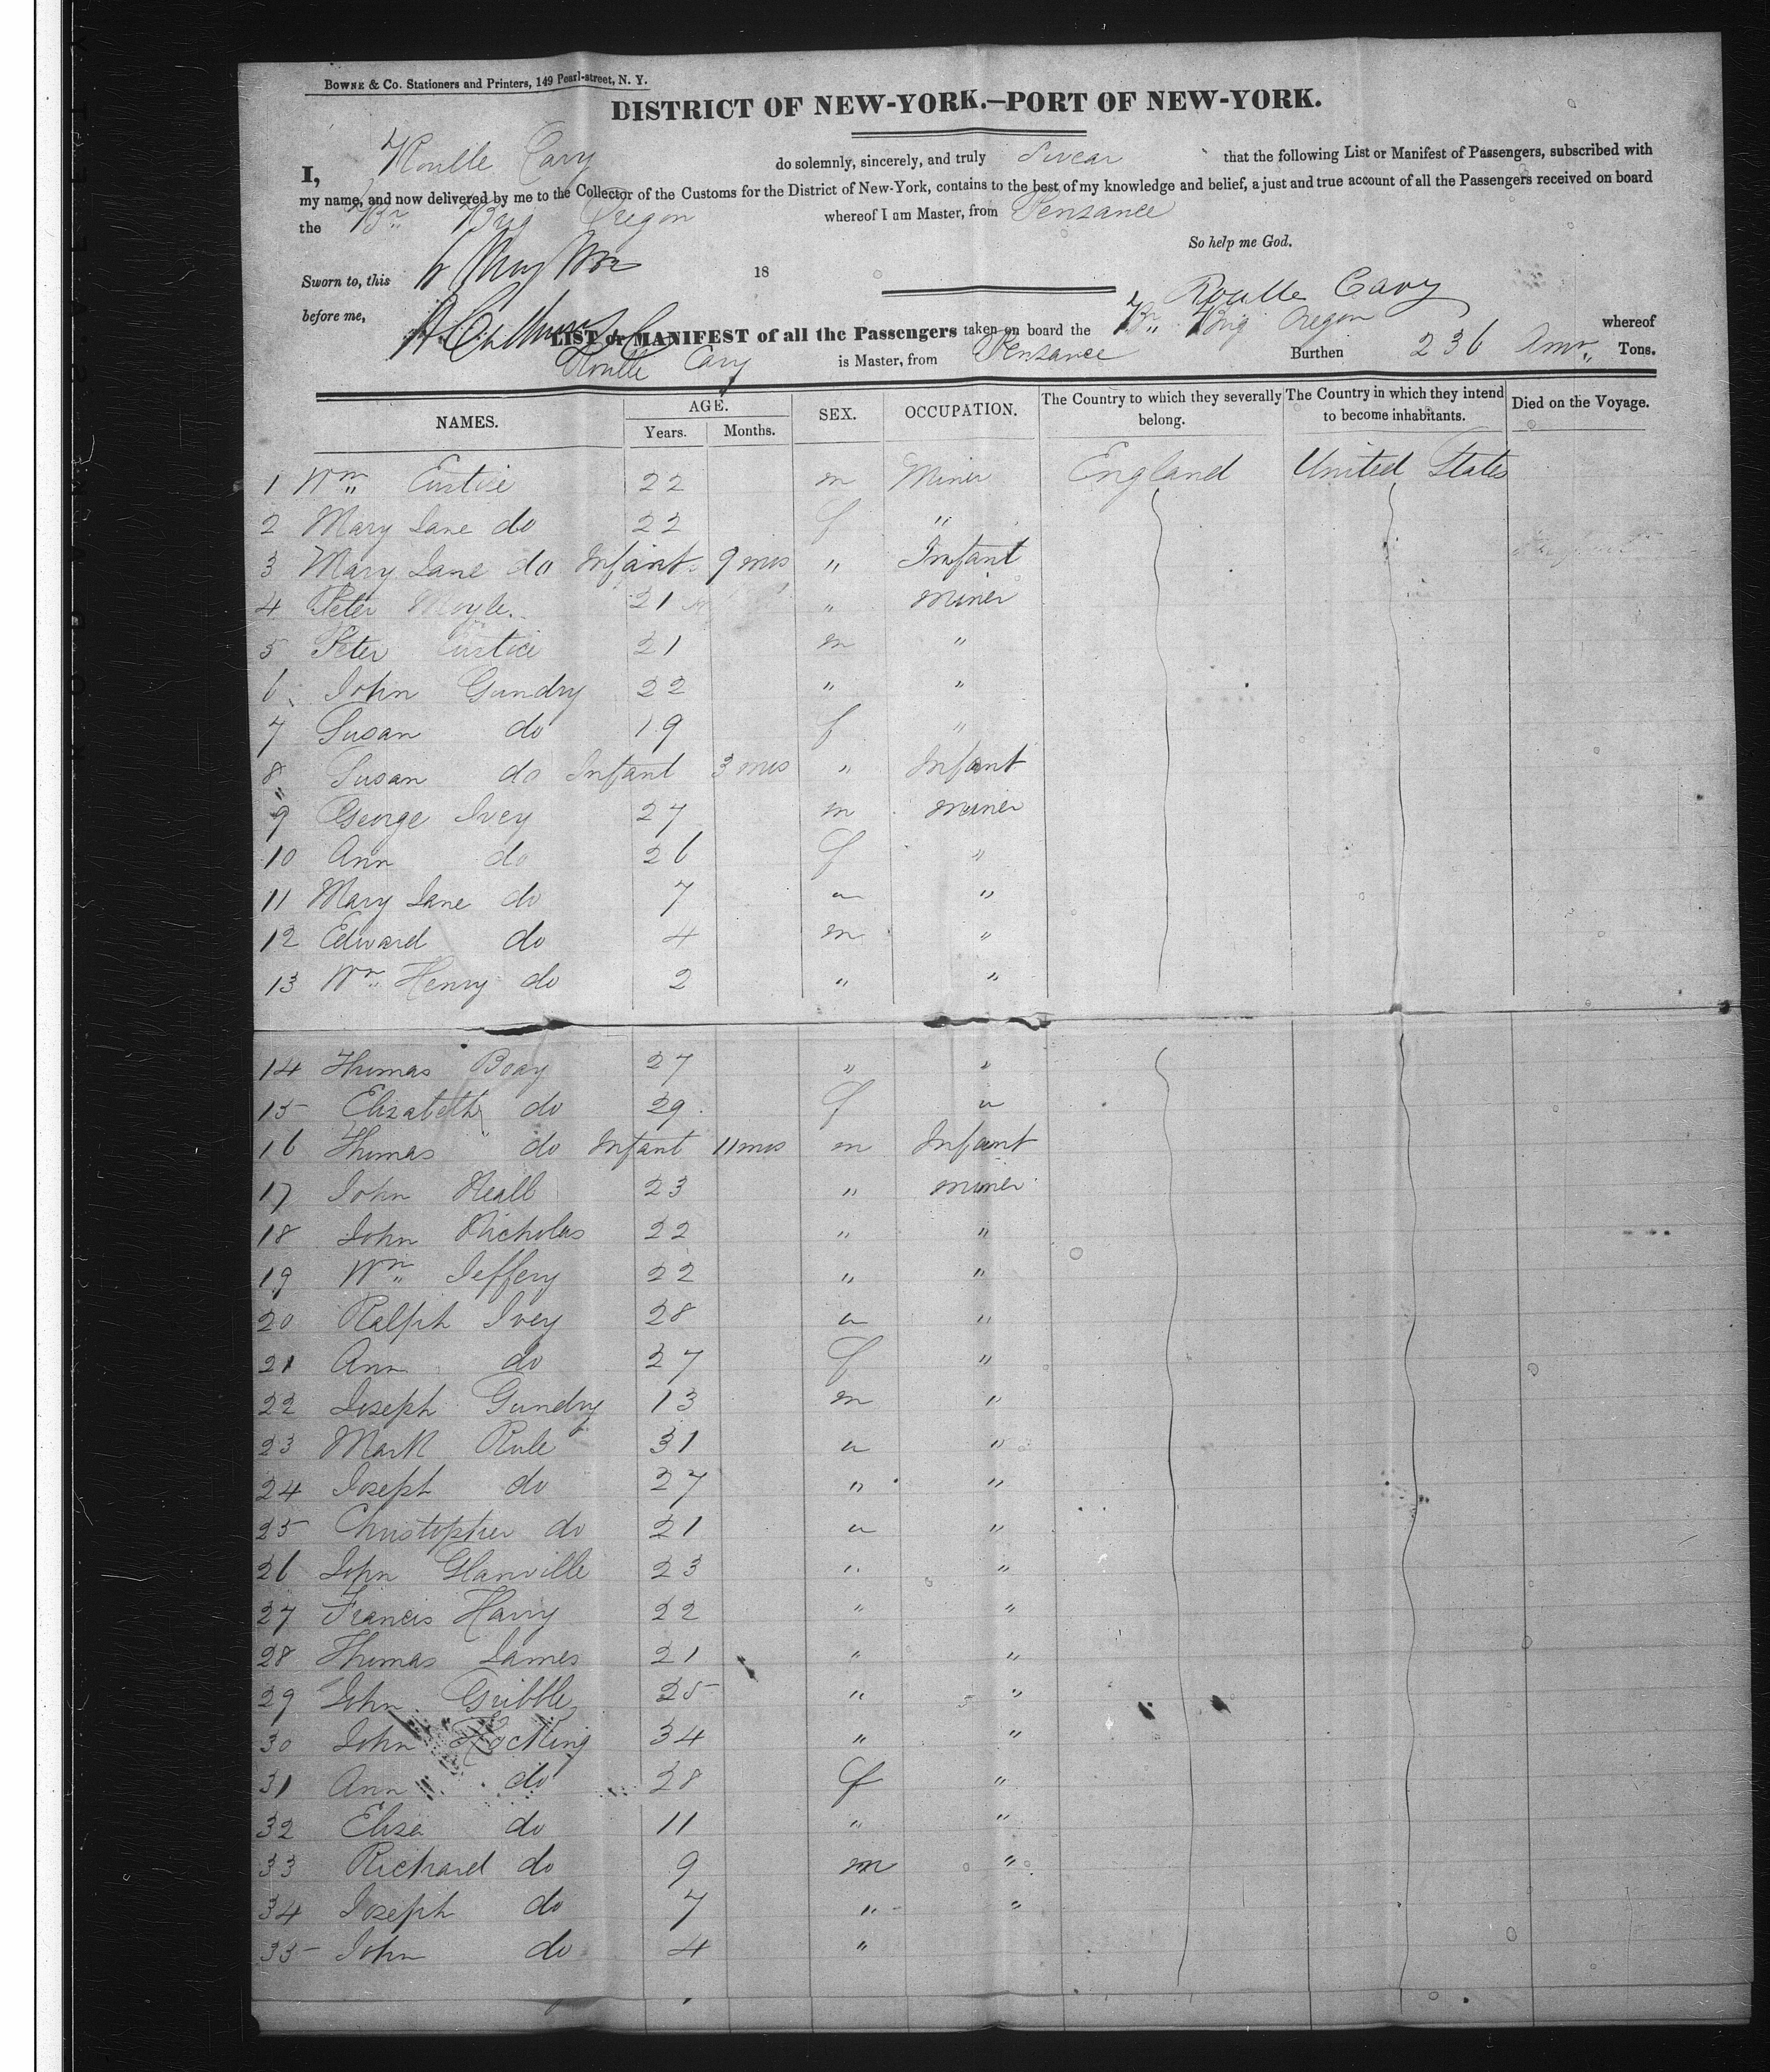 BOWNE & Co. Stationers and Printers, 149 Pearl-street, N. Y.
DISTRICT OF NEW-YORK.—PORT OF NEW-YORK.
I, Roulle Cary do solemnly, sincerely, and truly Swear that the following List or Manifest of Passengers, subscribed with
my name, and now delivered by me to the Collector of the Customs for the District of New-York, contains to the best of my knowledge and belief, a just and true account of all the Passengers received on board
the Br Brig Oregon whereof I am Master, from Penzance
So help me God.
Sworn to, this May 18
before me, Roulle Cary
LIST or MANIFEST of all the Passengers taken on board the Br Brig Oregon whereof
Roulle Cary is Master, from Penzance Burthen 236 Amn Tons.
NAMES. AGE. Years. Months. SEX. OCCUPATION. The Country to which they severally belong. The Country in which they intend to become inhabitants. Died on the Voyage.
1 Wm Eustice 22 m Miner England United States
2 Mary Jane do 22 f "
3 Mary Jane do Infant 9 mos " Infant
4 Peter Moyle 21 " miner
5 Peter Eustice 21 m "
6 John Gundry 22 " "
7 Susan do 19 f "
8 Susan do Infant 3 mos " Infant
9 George Ivey 27 m miner
10 Ann do 26 f "
11 Mary Jane do 7 " "
12 Edward do 4 m "
13 Wm Henry do 2 " "
14 Thomas Boay 27 " "
15 Elizabeth do 29 f "
16 Thomas do Infant 11 mos m Infant
17 John Heall 23 " miner
18 John Nicholas 22 " "
19 Wm Jeffery 22 " "
20 Ralph Ivey 28 " "
21 Ann do 27 f "
22 Joseph Gundry 13 m "
23 Mark Rule 31 " "
24 Joseph do 27 " "
25 Christopher do 21 " "
26 John Glanville 23 " "
27 Francis Harry 22 " "
28 Thomas James 21 " "
29 John Gribble 25 " "
30 John Hocking 34 " "
31 Ann do 28 f "
32 Eliza do 11 " "
33 Richard do 9 m "
34 Joseph do 7 " "
35 John do 4 "